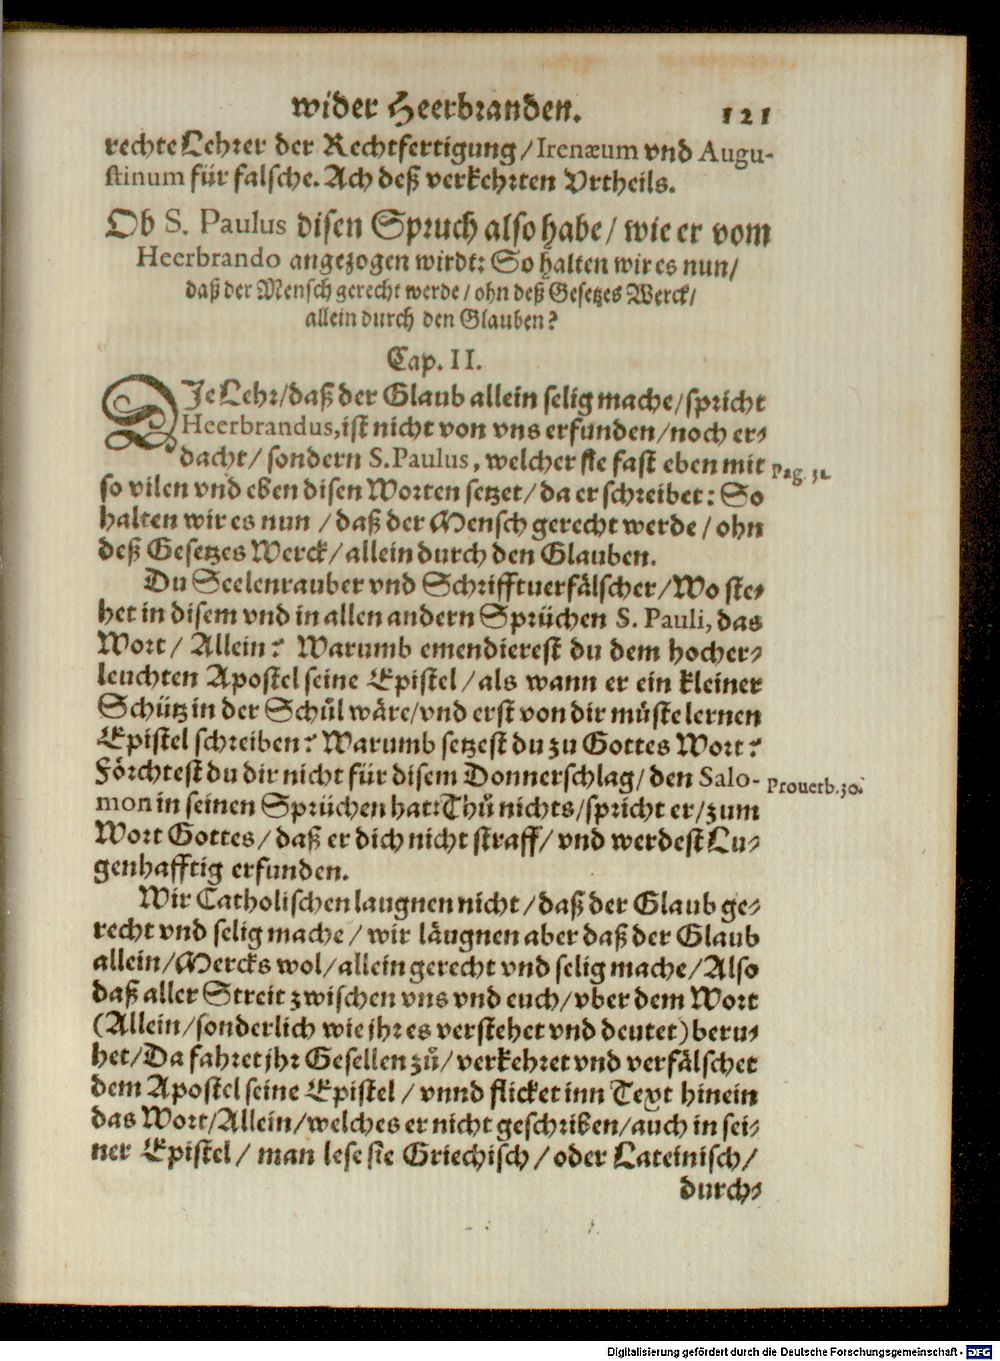 wider Heerbranden. 121
rechte Lehrer der Rechtfertigung/ Irenæum vnd Augu-
stinum für falsche. Ach deß verkehrten Vrtheils.
Ob S. Paulus disen Spruch also habe/ wie er vom
Heerbrando angezogen wirdt: So halten wir es nun/
daß der Mensch gerecht werde/ ohn deß Gesetzes Werck/
allein durch den Glauben?
Cap. II.
DJe Lehr/ daß der Glaub allein selig mache/ spricht
Heerbrandus, ist nicht von vns erfunden/ noch er-
dacht/ sondern S. Paulus, welcher sie fast eben mit
Pag. 31.
so vilen vnd eben disen Worten setzet/ da er schreibet: So
halten wir es nun / daß der Mensch gerecht werde / ohn
deß Gesetzes Werck/ allein durch den Glauben.
Du Seelenrauber vnd Schrifftuerfälscher/ Wo ste-
het in disem vnd in allen andern Sprüchen S. Pauli, das
Wort/ Allein? Warumb emendierest du dem hocher-
leuchten Apostel seine Epistel/ als wann er ein kleiner
Schütz in der Schůl wäre/ vnd erst von dir müste lernen
Epistel schreiben? Warumb setzest du zu Gottes Wort?
Förchtest du dir nicht für disem Donnerschlag/ den Salo-
Prouerb. 30.
mon in seinen Sprüchen hat: Thů nichts/ spricht er/ zum
Wort Gottes/ daß er dich nicht straff/ vnd werdest Lu-
genhafftig erfunden.
Wir Catholischen laugnen nicht/ daß der Glaub ge-
recht vnd selig mache/ wir läugnen aber daß der Glaub
allein/ Mercks wol/ allein gerecht vnd selig mache/ Also
daß aller Streit zwischen vns vnd euch/ vber dem Wort
(Allein/ sonderlich wie jhr es verstehet vnd deutet) beru-
het/ Da fahret jhr Gesellen zů/ verkehret vnd verfälschet
dem Apostel seine Epistel/ vnnd flicket inn Text hinein
das Wort/ Allein/ welches er nicht geschriben/ auch in sei-
ner Epistel/ man lese sie Griechisch/ oder Lateinisch/
durch-
Digitalisierung gefördert durch die Deutsche Forschungsgemeinschaft - DFG